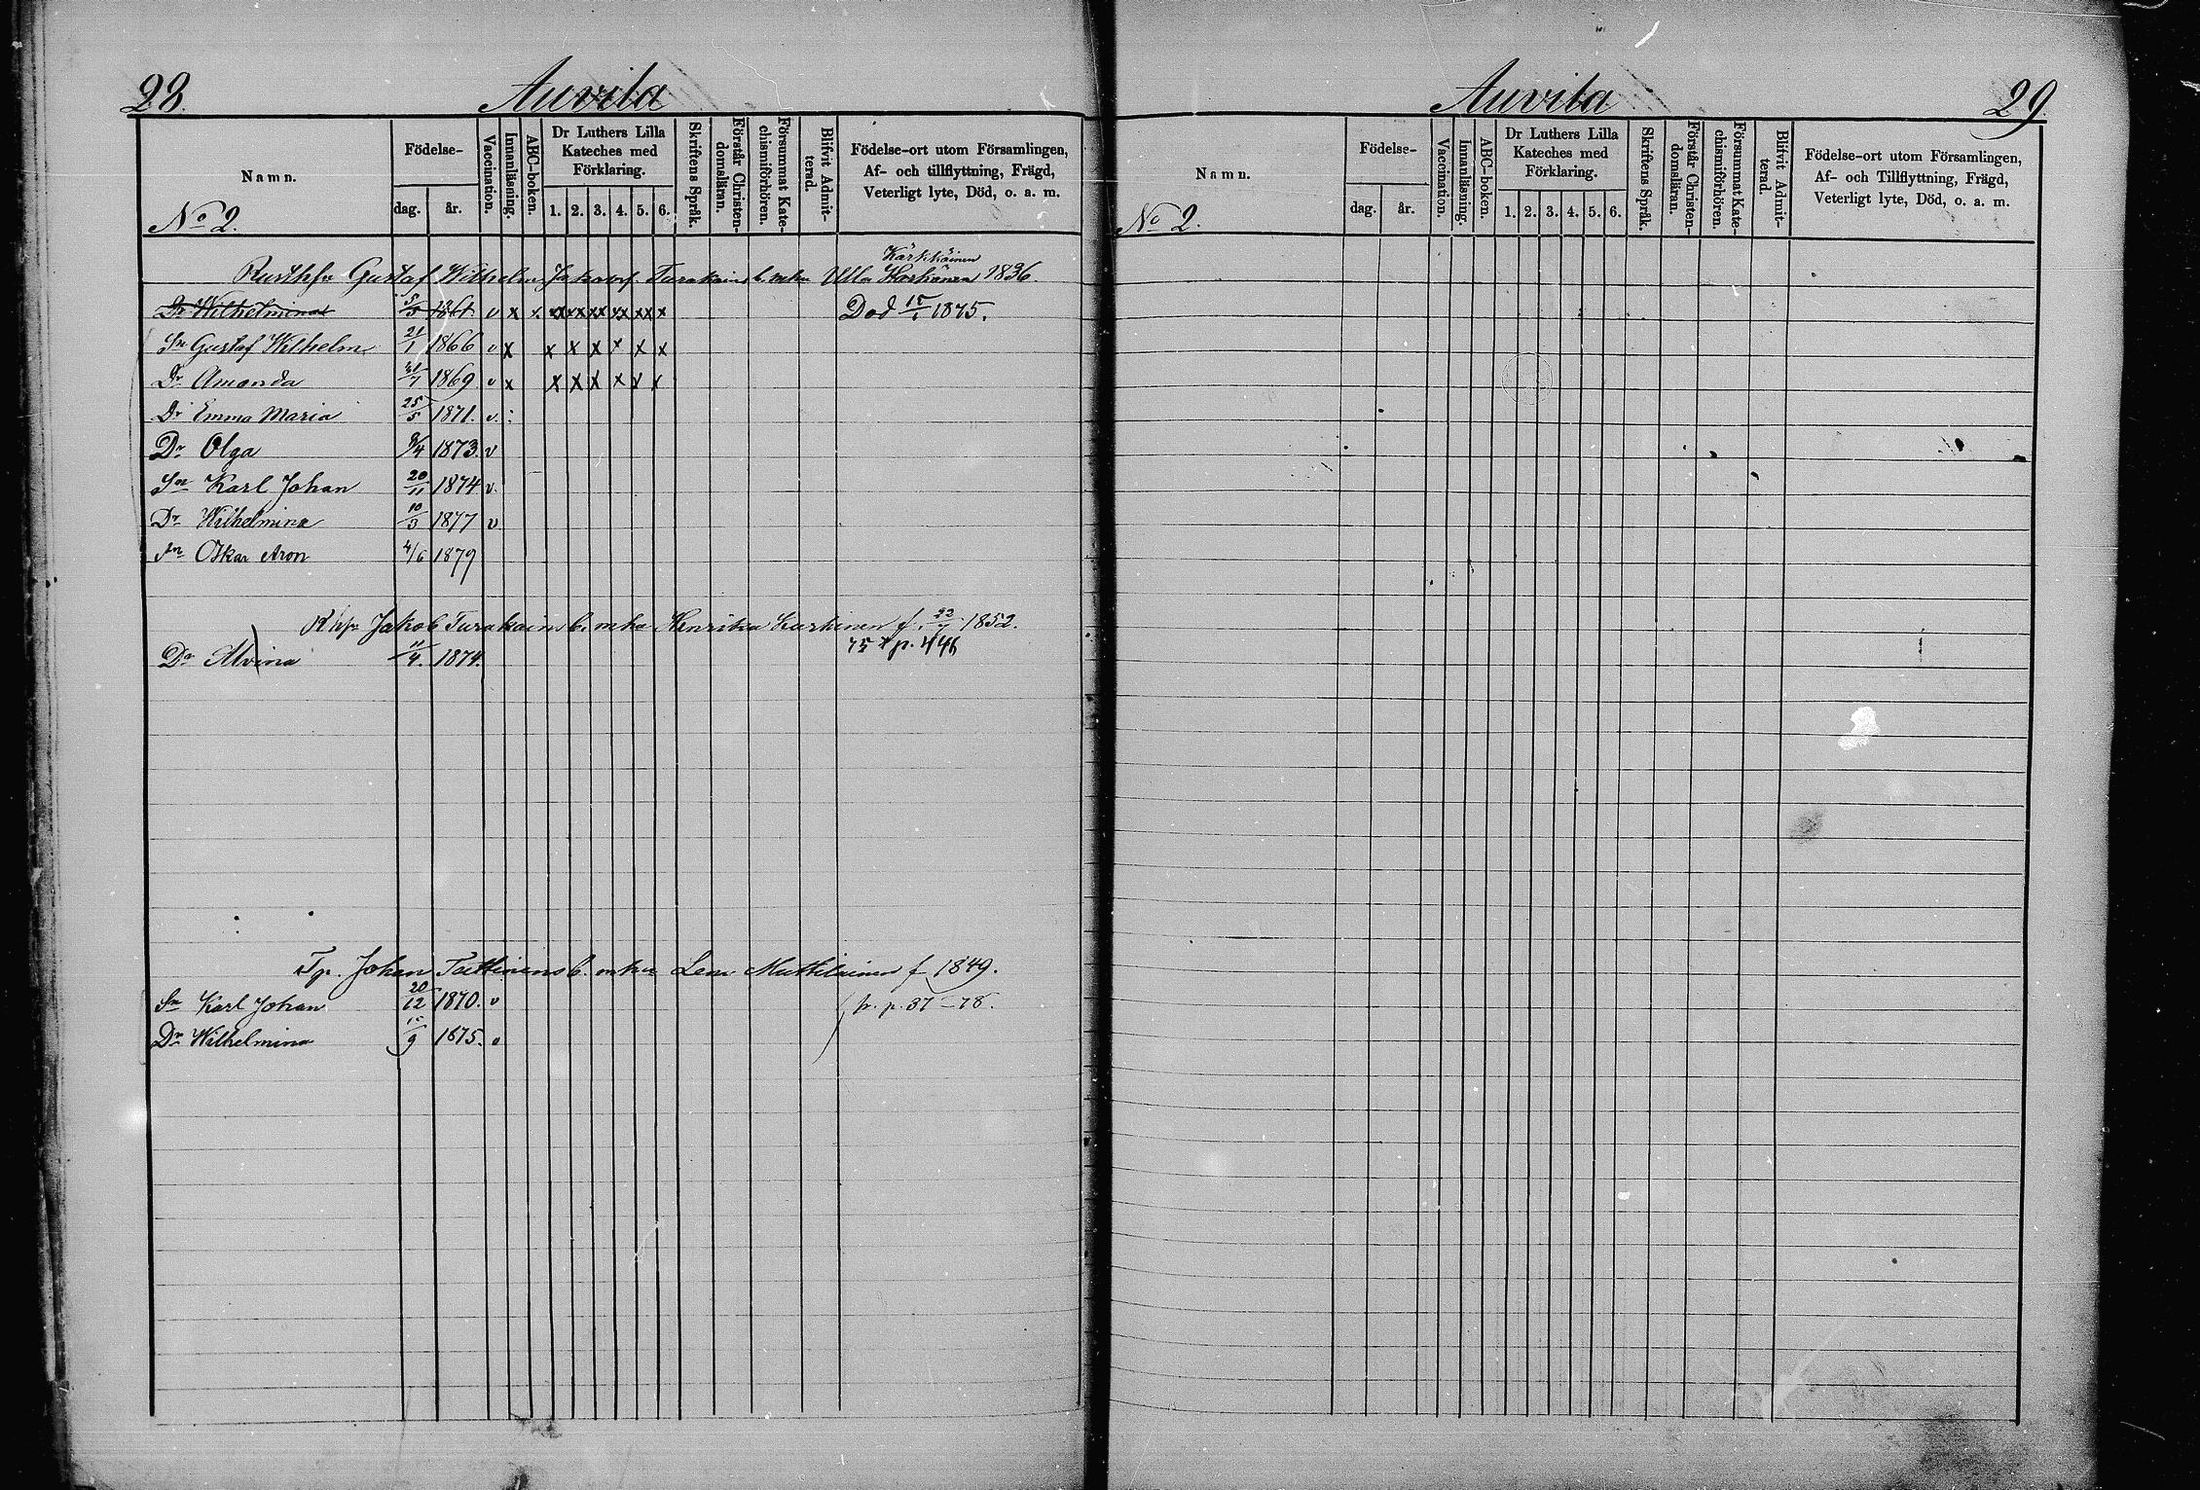 28.
Auvila
Namn.
Födelse-
dag.
år.
Vaccination.
Innanläsning.
ABC-boken.
Dr Luthers Lilla
Kateches med
Förklaring.
1. 2. 3. 4. 5. 6.
Skriftens Språk.
Förstår Christen-
domsläran.
Försummat Kate-
chismiförhören.
Blifvit Admit-
terad.
Födelse-ort utom Församlingen,
Af- och tillflyttning, Frägd,
Veterligt lyte, Död, o. a. m.
No 2.
Kärkkäinen
Gustaf Wilhelm Ulla 1836.
Dr Wilhelmina 5/5 1861 v x x xx xx xx xx xx x Död 1875.
Sn Gustaf Wilhelm 21/1 1866 v x x x x x x x
Dr Amanda 31/7 1869 v x x x x x x x
Dr Emma Maria 25/5 1871. v.
Dr Olga 9/4 1873. v
Sn Karl Johan 20/11 1874 v.
Dr Wilhelmina 10/3 1877 v
Sn Oskar Aron 4/6 1879
Jakob f. 1852.
75 p. 446
Dr Alvina 11/4. 1874.
Tp. Johan f 1849.
Sn Karl Johan 20/12 1870. v p. p. 37 - 78.
Dr Wilhelmina 15/9 1875. v
Auvila
29.
Namn.
Födelse-
dag.
år.
Vaccination.
Innanläsning.
ABC-boken.
Dr Luthers Lilla
Kateches med
Förklaring.
1. 2. 3. 4. 5. 6.
Skriftens Språk.
Förstår Christen-
domsläran.
Försummat Kate-
chismiförhören.
Blifvit Admit-
terad.
Födelse-ort utom Församlingen,
Af- och Tillflyttning, Frägd,
Veterligt lyte, Död, o. a. m.
No 2.